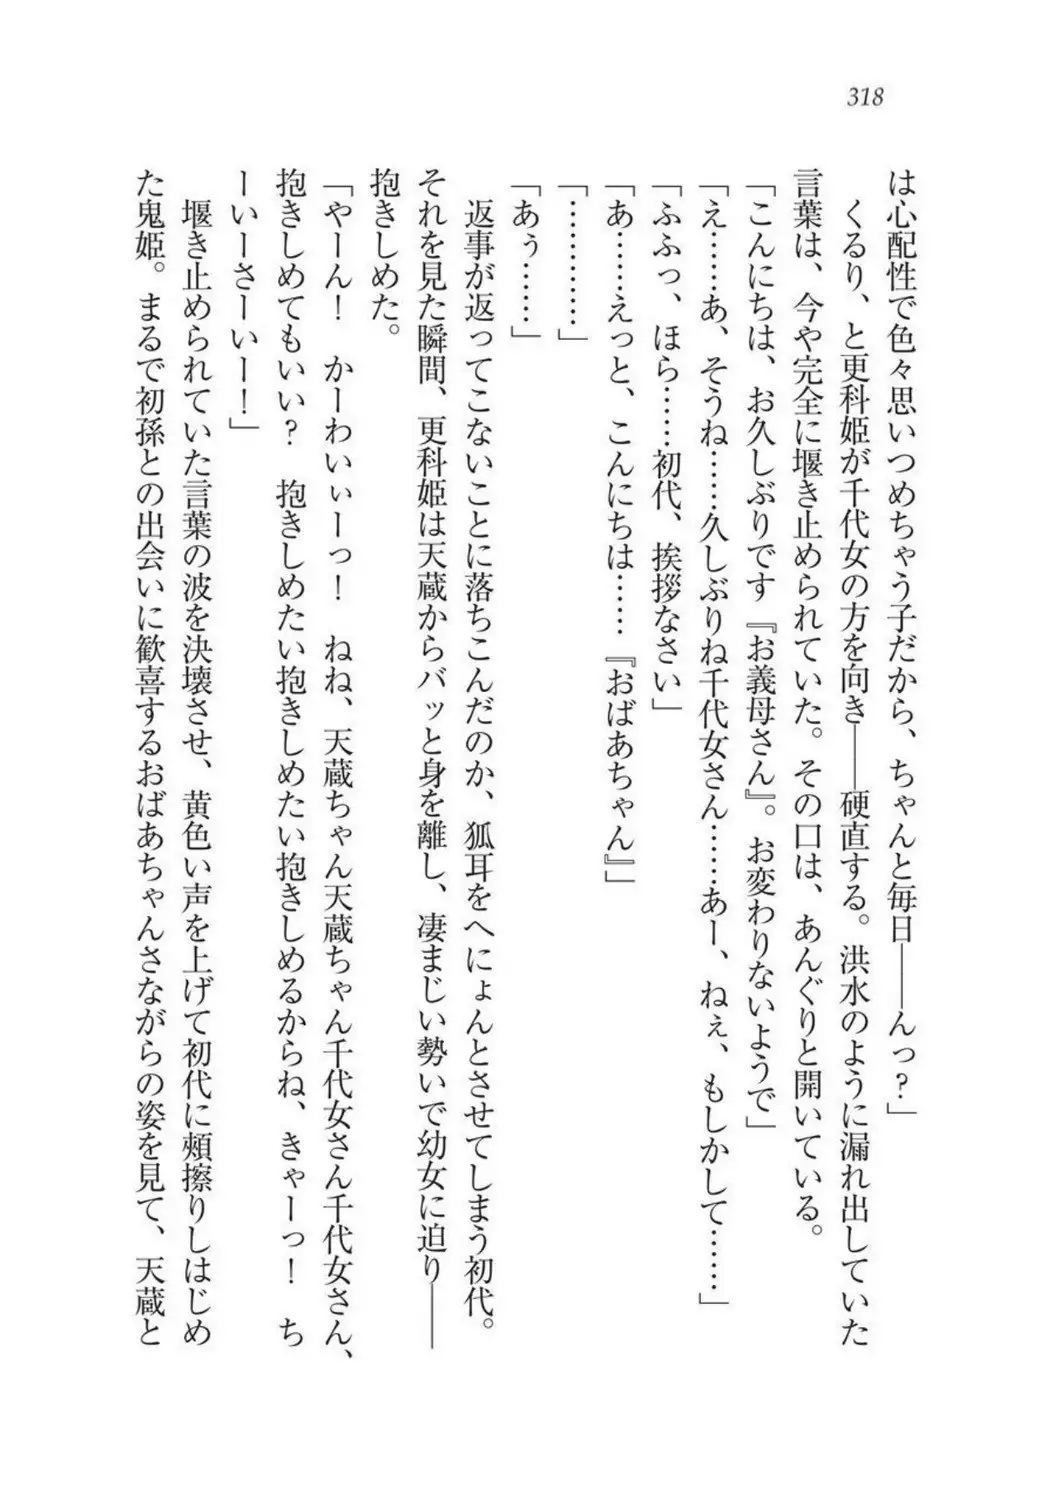 318
は心配性で色々思いつめちゃう子だから、ちゃんと毎日――んっ？」
　くるり、と更科姫が千代女の方を向き――硬直する。洪水のように漏れ出していた
言葉は、今や完全に堰き止められていた。その口は、あんぐりと開いている。
「こんにちは、お久しぶりです『お義母さん』。お変わりないようで」
「え……あ、そうね……久しぶりね千代女さん……あー、ねぇ、もしかして……」
「ふふっ、ほら……初代、挨拶なさい」
「あ……えっと、こんにちは……『おばあちゃん』」
「…………」
「あぅ……」
　返事が返ってこないことに落ちこんだのか、狐耳をへにょんとさせてしまう初代。
それを見た瞬間、更科姫は天蔵からバッと身を離し、凄まじい勢いで幼女に迫り――
抱きしめた。
「やーん！　かーわいぃーっ！　ねね、天蔵ちゃん天蔵ちゃん千代女さん千代女さん、
抱きしめてもいい？　抱きしめたい抱きしめたい抱きしめるからね、きゃーっ！　ち
ーいーさーいー！」
　堰き止められていた言葉の波を決壊させ、黄色い声を上げて初代に頬擦りしはじめ
た鬼姫。まるで初孫との出会いに歓喜するおばあちゃんさながらの姿を見て、天蔵と